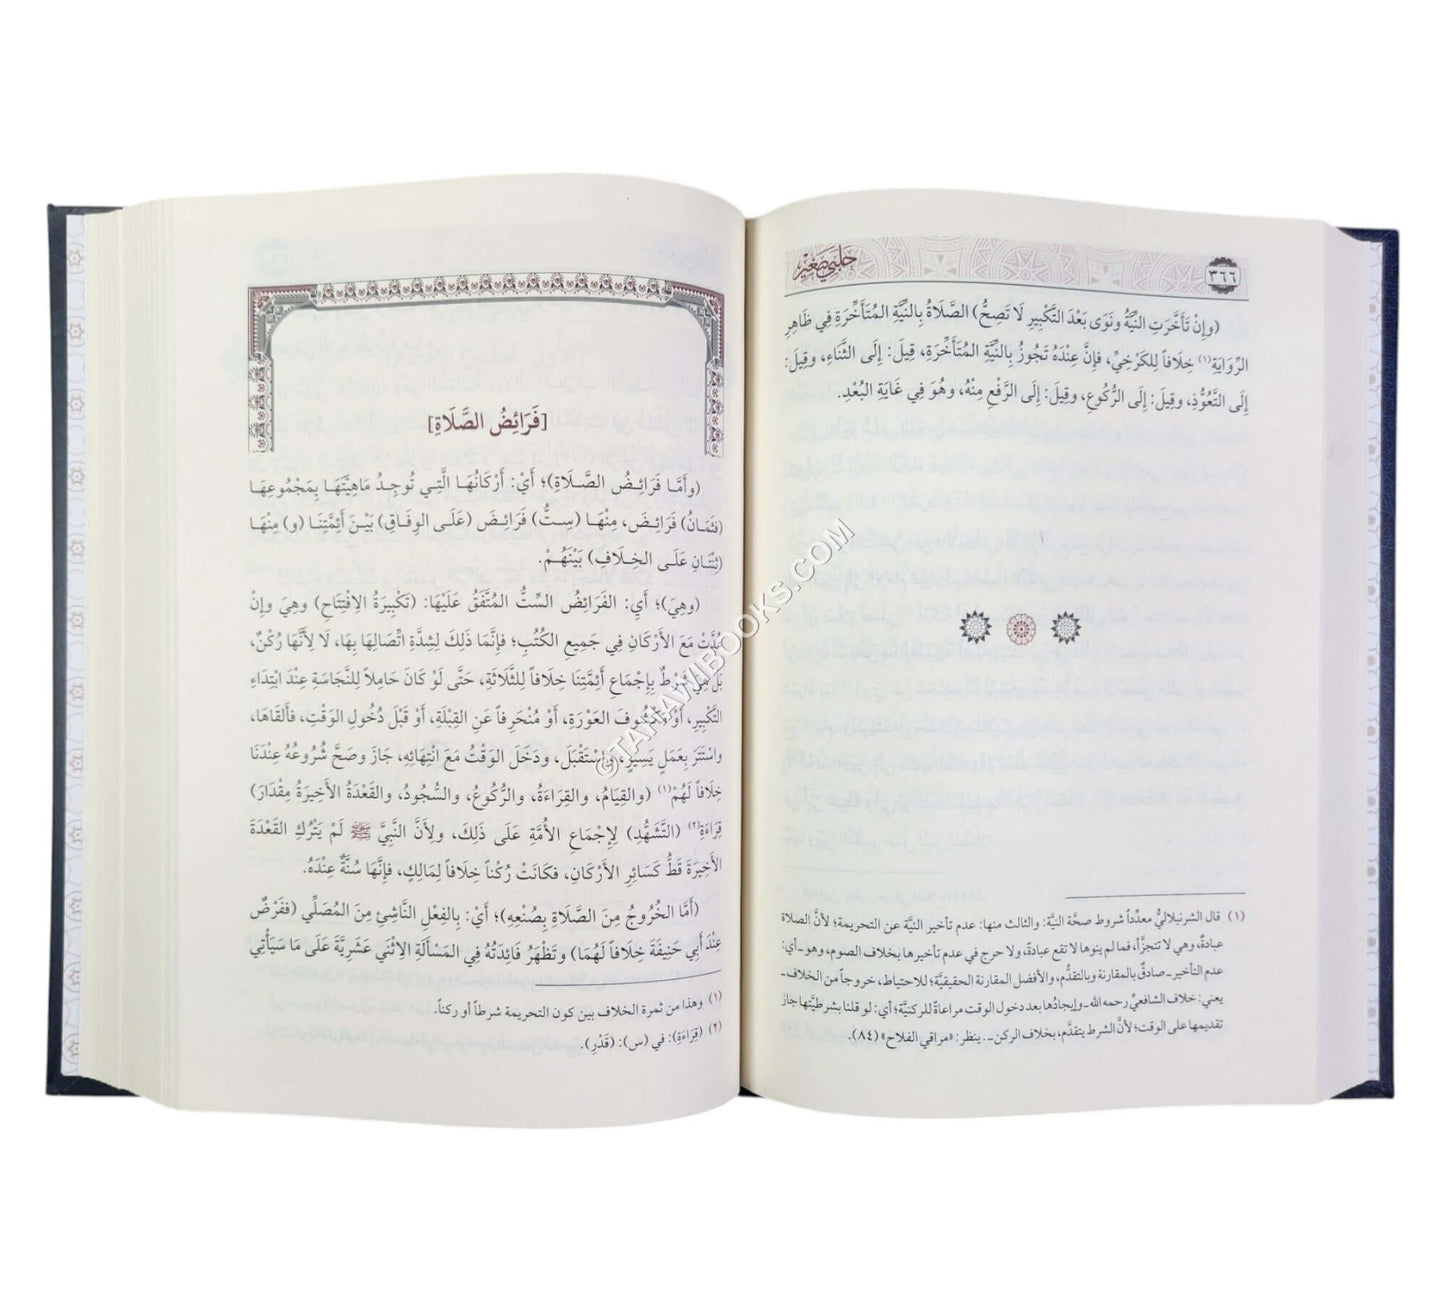 حلبي صغير
٣٦٦
(وإِنْ تَأَخَّرَتِ النِّيَّةُ ونَوَى بَعْدَ التَّكْبِيرِ لَا تَصِحُّ) الصَّلَاةُ بِالنِّيَّةِ المُتَأَخِّرَةِ فِي ظَاهِرِ
الرِّوَايَةِ(١) خِلَافاً لِلكَرْخِيِّ، فإِنَّ عِنْدَهُ تَجُوزُ بِالنِّيَّةِ المُتَأَخِّرَةِ، قِيلَ: إِلَى الثَّنَاءِ، وقِيلَ:
إِلَى التَّعَوُّذِ، وقِيلَ: إِلَى الرُّكُوعِ، وقِيلَ: إِلَى الرَّفْعِ مِنْهُ، وهُوَ فِي غَايَةِ البُعْدِ.
(١) قال الشرنبلاليُّ معدِّداً شروط صحَّة النيَّة: والثالث منها: عدم تأخير النيَّة عن التحريمة؛ لأنَّ الصلاة
عبادةٌ، وهي لا تتجزَّأ، فما لم ينوها لا تقع عبادةً، ولا حرج في عدم تأخيرها بخلاف الصوم، وهو ـ أي:
عدم التأخير ـ صادقٌ بالمقارنة وبالتقدُّم، والأفضل المقارنة الحقيقيَّة؛ للاحتياط، خروجاً من الخلاف ـ
يعني: خلاف الشافعيِّ رحمه الله ـ وإيجادُها بعد دخول الوقت مراعاةً للركنيَّة؛ أي: لو قلنا بشرطيَّتها جاز
تقديمها على الوقت؛ لأنَّ الشرط يتقدَّم، بخلاف الركن ـ. ينظر: «مراقي الفلاح» (٨٤).
[فَرَائِضُ الصَّلَاةِ]
(وأَمَّا فَرَائِضُ الصَّلَاةِ)؛ أَيْ: أَرْكَانُهَا الَّتِي تُوجِدُ مَاهِيَّتَهَا بِمَجْمُوعِهَا
(فَثَمَانُ) فَرَائِضَ، مِنْهَا (سِتُّ) فَرَائِضَ (عَلَى الوِفَاقِ) بَيْنَ أَئِمَّتِنَا (و) مِنْهَا
(ثِنْتَانِ عَلَى الخِلَافِ) بَيْنَهُمْ.
(وهِيَ)؛ أَيِ: الفَرَائِضُ السِّتُّ المُتَّفَقُ عَلَيْهَا: (تَكْبِيرَةُ الِافْتِتَاحِ) وهِيَ وإِنْ
عُدَّتْ مَعَ الأَرْكَانِ فِي جَمِيعِ الكُتُبِ؛ فإِنَّمَا ذَلِكَ لِشِدَّةِ اتِّصَالِهَا بِهَا، لَا لِأَنَّهَا رُكْنٌ،
بَلْ هِيَ شَرْطٌ بِإِجْمَاعِ أَئِمَّتِنَا خِلَافاً لِلثَّلَاثَةِ، حَتَّى لَوْ كَانَ حَامِلاً لِلنَّجَاسَةِ عِنْدَ ابْتِدَاءِ
التَّكْبِيرِ، أَوْ مَكْشُوفَ العَوْرَةِ، أَوْ مُنْحَرِفاً عَنِ القِبْلَةِ، أَوْ قَبْلَ دُخُولِ الوَقْتِ، فأَلقَاهَا،
واسْتَتَرَ بِعَمَلٍ يَسِيرٍ، واسْتَقْبَلَ، ودَخَلَ الوَقْتُ مَعَ انْتِهَائِهِ، جَازَ وصَحَّ شُرُوعُهُ عِنْدَنَا
خِلَافاً لَهُمْ(١) (والقِيَامُ، والقِرَاءَةُ، والرُّكُوعُ، والسُّجُودُ، والقَعْدَةُ الأَخِيرَةُ مِقْدَارَ)
قِرَاءَةِ(٢) (التَّشَهُّدِ) لِإِجْمَاعِ الأُمَّةِ عَلَى ذَلِكَ، ولِأَنَّ النَّبِيَّ ﷺ لَمْ يَتْرُكِ القَعْدَةَ
الأَخِيرَةَ قَطُّ كَسَائِرِ الأَرْكَانِ، فكَانَتْ رُكْناً خِلَافاً لِمَالِكٍ، فإِنَّهَا سُنَّةٌ عِنْدَهُ.
(أَمَّا الخُرُوجُ مِنَ الصَّلَاةِ بِصُنْعِهِ)؛ أَيْ: بِالفِعْلِ النَّاشِئِ مِنَ المُصَلِّي (ففَرْضٌ
عِنْدَ أَبِي حَنِيفَةَ خِلَافاً لَهُمَا) وتَظْهَرُ فَائِدَتُهُ فِي المَسْأَلَةِ الِاثْنَي عَشْرِيَّةَ عَلَى مَا سَيَأْتِي
(١) وهذا من ثمرة الخلاف بين كون التحريمة شرطاً أو ركناً.
(٢) (قِرَاءَةِ): في (س): (قَدْرِ).
©TAHAWIBOOKS.COM